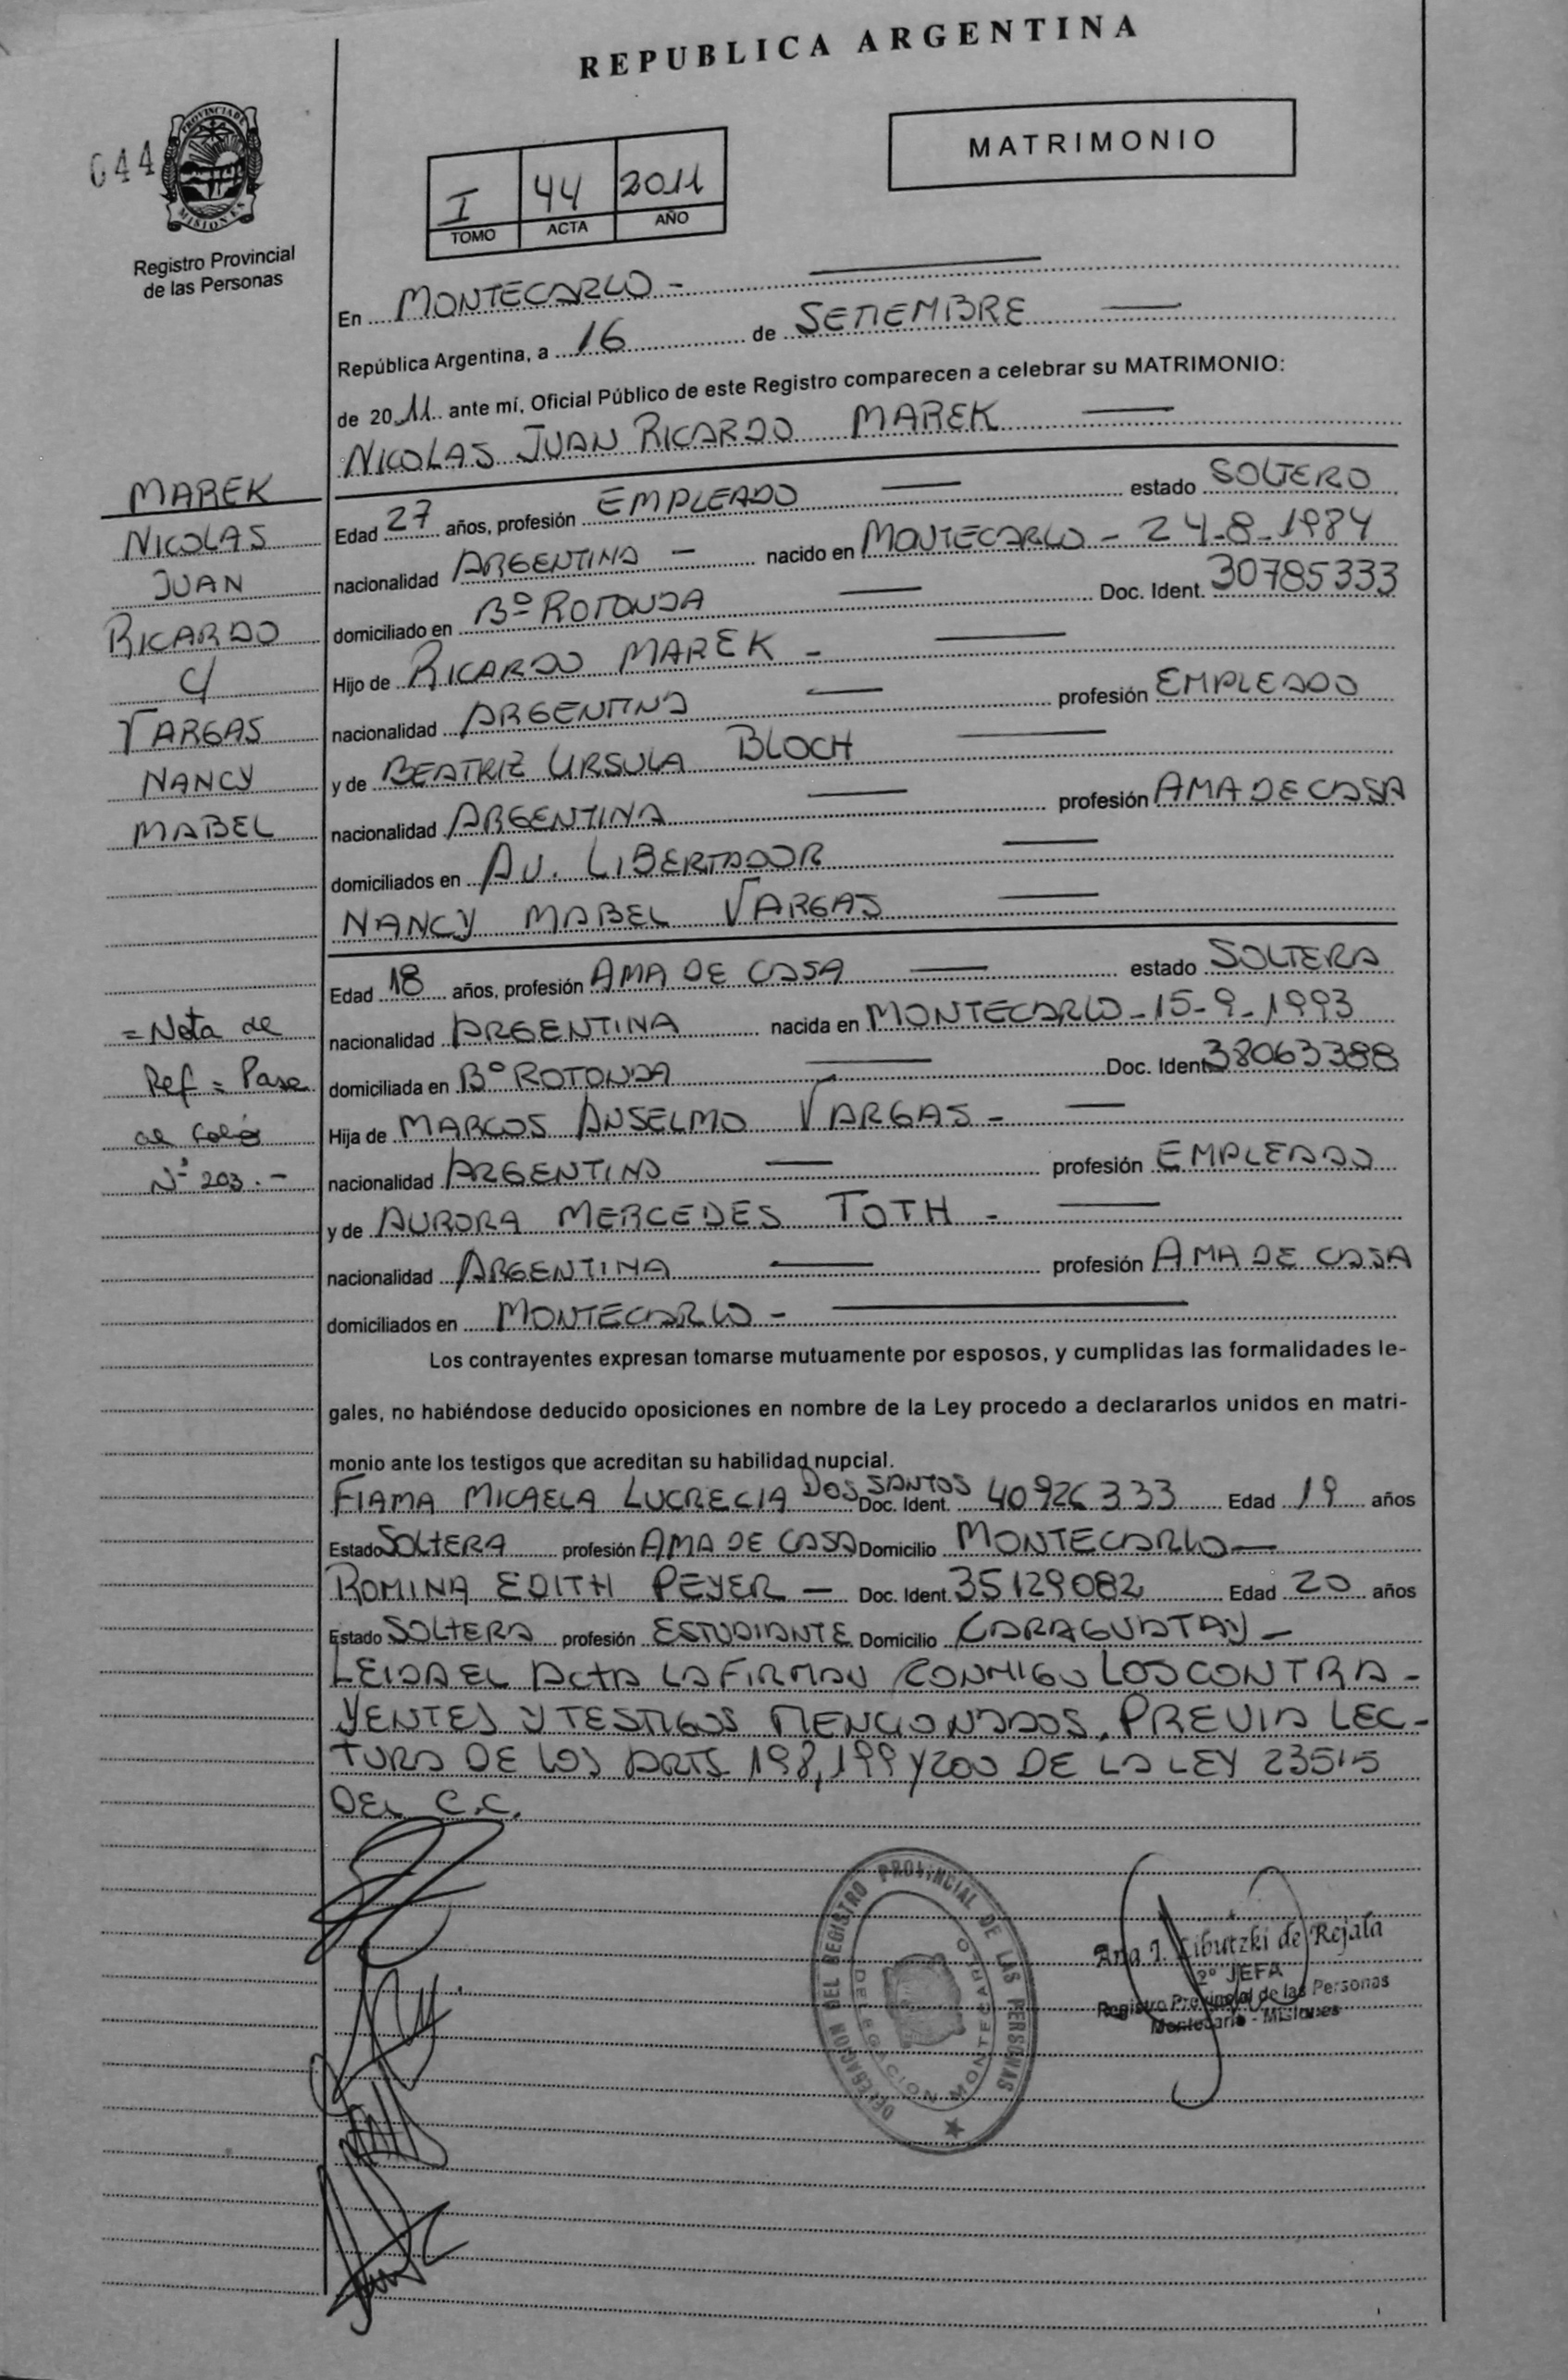 REPUBLICA ARGENTINA
MATRIMONIO
044
PROVINCIA DE MISIONES
Registro Provincial
de las Personas
I 44 2011
TOMO ACTA AÑO
En MONTECARLO -
República Argentina, a 16 de SETIEMBRE
de 2011 ante mí, Oficial Público de este Registro comparecen a celebrar su MATRIMONIO:
NICOLAS JUAN RICARDO MAREK
Edad 27 años, profesión EMPLEADO estado SOLTERO
nacionalidad ARGENTINA - nacido en MONTECARLO - 24-8-1984
domiciliado en Bº ROTONDA Doc. Ident. 30785333
Hijo de RICARDO MAREK -
nacionalidad ARGENTINA profesión EMPLEADO
y de BEATRIZ URSULA BLOCH
nacionalidad ARGENTINA profesión AMA DE CASA
domiciliados en AV. LIBERTADOR
NANCY MABEL VARGAS
Edad 18 años, profesión AMA DE CASA estado SOLTERA
nacionalidad ARGENTINA nacida en MONTECARLO - 15-9-1993
domiciliada en Bº ROTONDA Doc. Ident. 38063388
Hija de MARCOS ANSELMO VARGAS -
nacionalidad ARGENTINA profesión EMPLEADO
y de AURORA MERCEDES TOTH -
nacionalidad ARGENTINA profesión AMA DE CASA
domiciliados en MONTECARLO -
MAREK
NICOLAS
JUAN
RICARDO
C/
VARGAS
NANCY
MABEL
= Nota de
Ref = Pase
al folio
Nº 203.-
Los contrayentes expresan tomarse mutuamente por esposos, y cumplidas las formalidades le-
gales, no habiéndose deducido oposiciones en nombre de la Ley procedo a declararlos unidos en matri-
monio ante los testigos que acreditan su habilidad nupcial.
FIAMA MICAELA LUCRECIA DOS SANTOS Doc. Ident. 40926333 Edad 19 años
Estado SOLTERA profesión AMA DE CASA Domicilio MONTECARLO
ROMINA EDITH PEYER - Doc. Ident. 35129082 Edad 20 años
Estado SOLTERA profesión ESTUDIANTE Domicilio CARAGUATAY -
LEIDA EL ACTA LA FIRMAN CONMIGO LOS CONTRA-
YENTES Y TESTIGOS MENCIONADOS, PREVIA LEC-
TURA DE LOS ARTS 198, 199 Y 200 DE LA LEY 23515
DEL C.C.
DELEGACION DEL REGISTRO PROVINCIAL DE LAS PERSONAS
DELEGACION MONTECARLO
Ana I. Cibutzki de Rejala
2º JEFA
Registro Provincial de las Personas
Montecarlo - Misiones